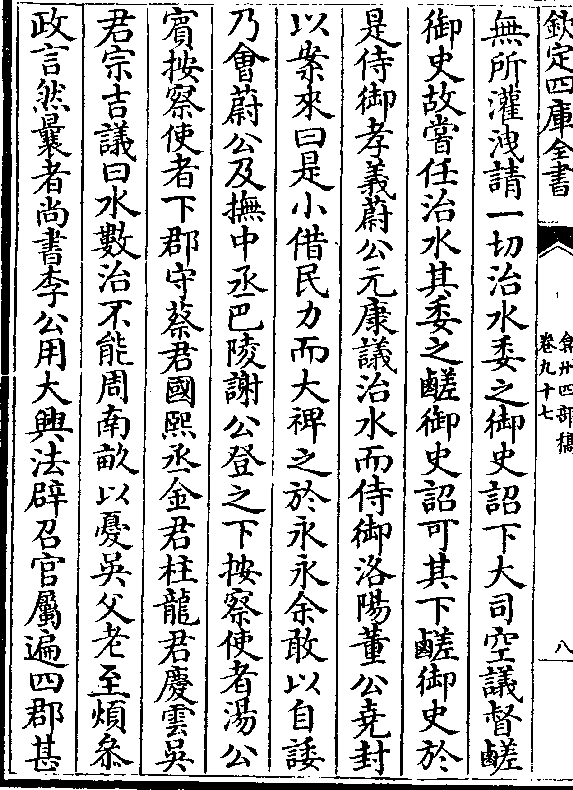 欽定四庫全書
弇州四部稿
卷九十七
八
無所灌洩請一切治水委之御史詔下大司空議督鹺
御史故嘗任治水其委之鹺御史詔可其下鹺御史於
是侍御孝義蔚公元康議治水而侍御洛陽董公堯封
以桒來曰是小借民力而大裨之於永永余敢以自諉
乃會蔚公及撫中丞巴陵謝公登之下按察使者湯公
賓按察使者下郡守蔡君國熙丞金君柱龍君慶雲吳
君宗吉議曰水數治不能周南畝以憂吳父老至煩叅
政言然曩者尚書李公用大興法辟召官屬遍四郡甚